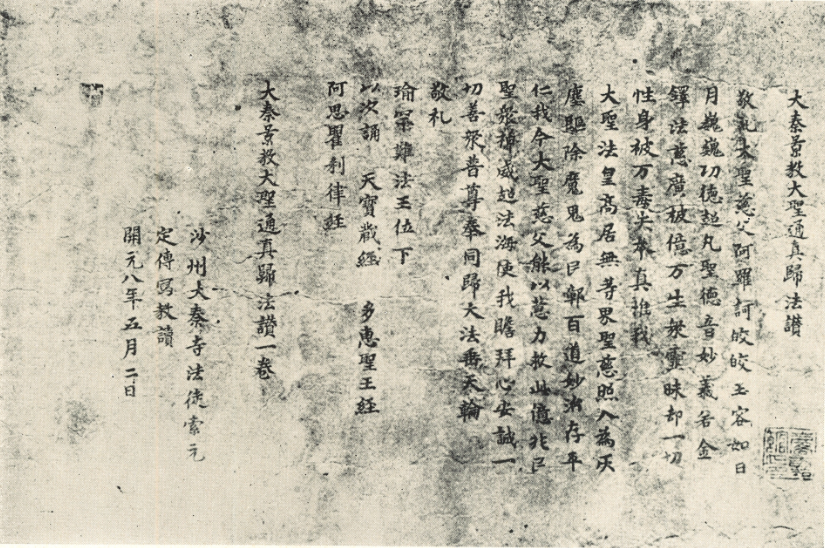 大秦景教大聖通真歸法讚
敬礼大聖慈父阿羅訶皎皎玉容如日
月巍巍功德超凡聖德音妙義若金
鐸法慈廣被億万生衆靈昧却一切
性身被万毒失本真惟我
大聖法皇高居無等界聖慈照入為灰
塵驅除魔鬼為民鄣百道妙治存平
仁我今大聖慈父能以慈力救此億兆民
聖衆神威超法海使我瞻拜心安誠一
切善衆普尊奉同歸大法垂天輪
敬礼
瑜罕難法王位下
以次誦 天寶藏經 多惠聖王經
阿思瞿利律經
大秦景教大聖通真歸法讚一卷
沙州大秦寺法徒索元
定傳寫教讀
開元八年五月二日